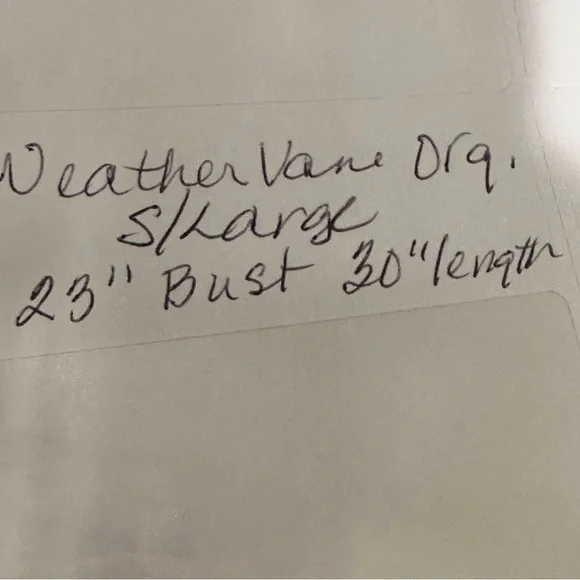 Weather Vane Org.
S/Large
23" Bust 30" length